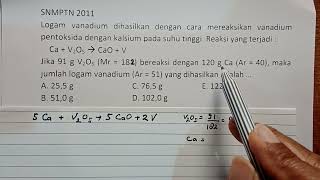 SNMPTN 2011
Logam vanadium dihasilkan dengan cara mereaksikan vanadium
pentoksida dengan kalsium pada suhu tinggi. Reaksi yang terjadi :
Ca + V₂O₅ → CaO + V
Jika 91 g V₂O₅ (Mr = 182) bereaksi dengan 120 g Ca (Ar = 40), maka
jumlah logam vanadium (Ar = 51) yang dihasilkan adalah ...
A. 25,5 g C. 76,5 g E. 122
B. 51,0 g D. 102,0 g
5 Ca + V₂O₅ → 5 CaO + 2 V V₂O₅ = 91/182 =
Ca =